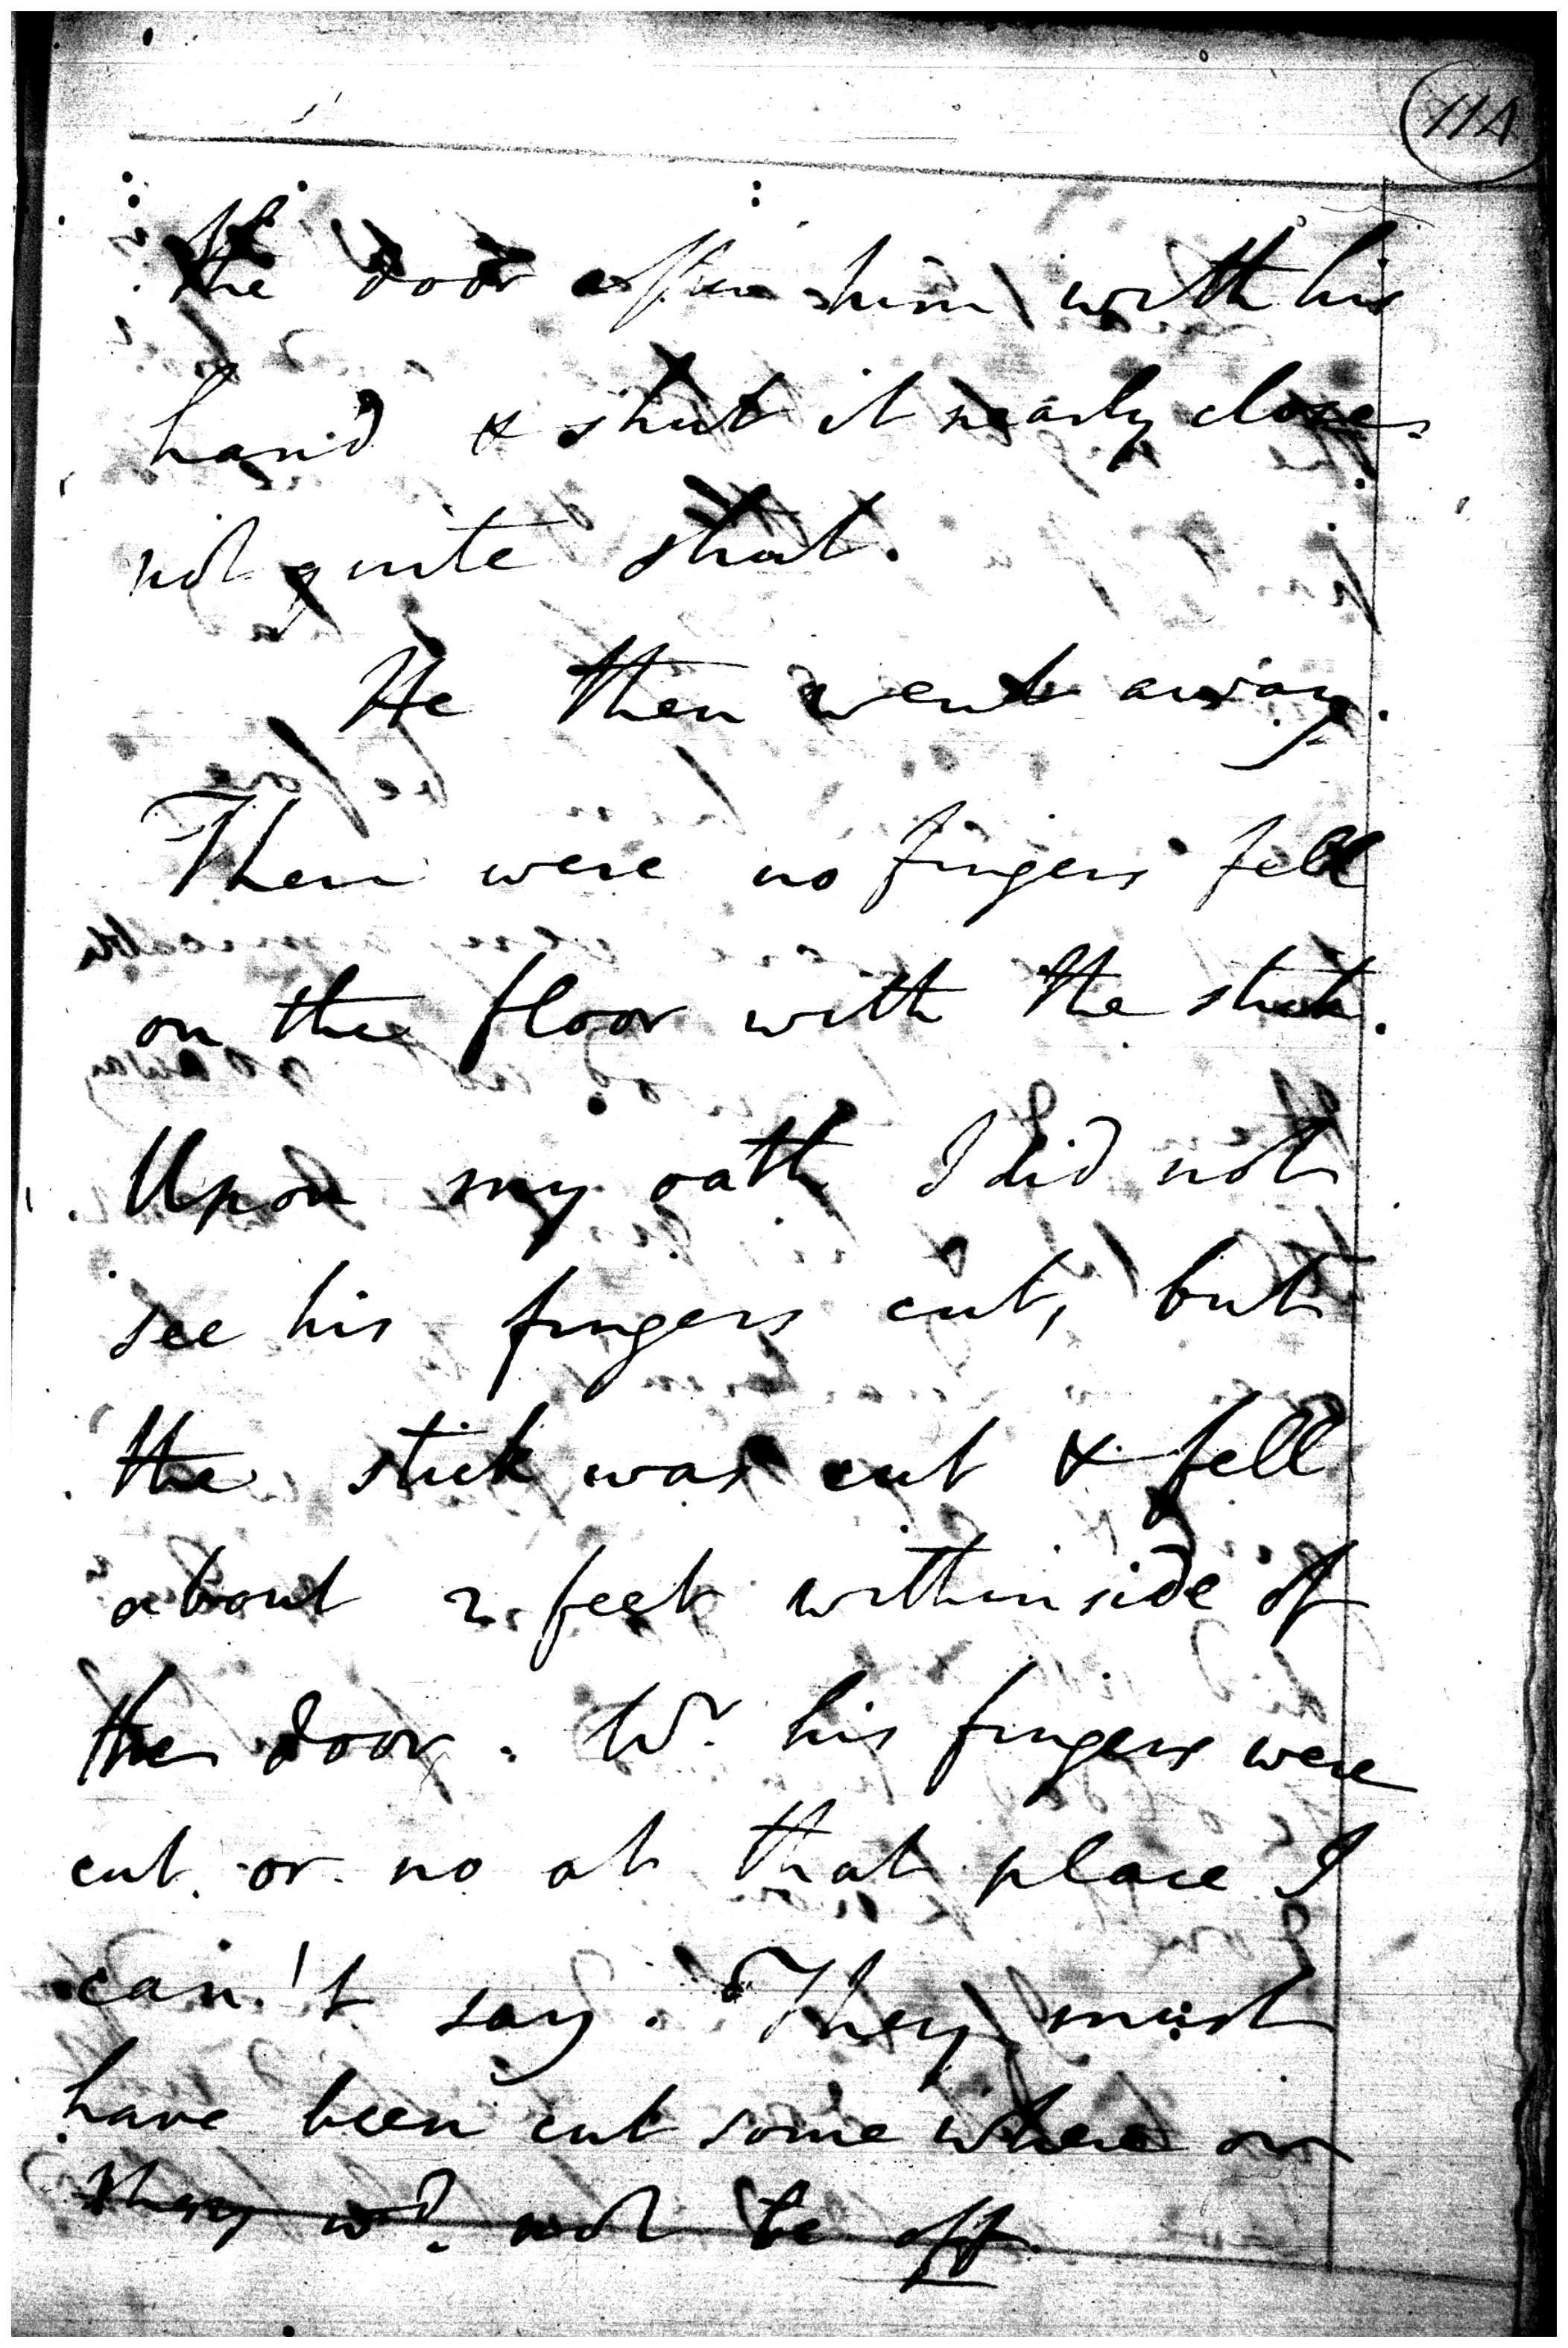 114
the door after him with his
hand & shut it nearly close.
not quite shut.
He then went away.
There were no fingers fell
on the floor with the stick.
Upon my oath I did not
see his fingers cut, but
the stick was cut & fell
about 2 feet withinside of
the door. Wr. his fingers were
cut or no at that place I
can't say. They must
have been cut some where or
they wd. not be off.